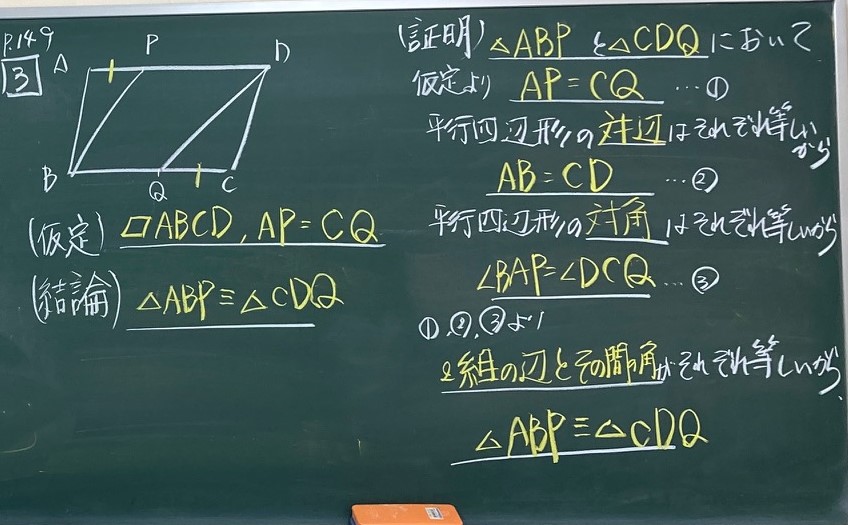 P.149
3
A P D
B Q C
(仮定) ▱ABCD, AP=CQ
(結論) △ABP≡△CDQ
(証明) △ABPと△CDQにおいて
仮定より AP=CQ …①
平行四辺形の対辺はそれぞれ等しいから
AB=CD …②
平行四辺形の対角はそれぞれ等しいから
∠BAP=∠DCQ …③
①,②,③より
2組の辺とその間の角がそれぞれ等しいから、
△ABP≡△CDQ